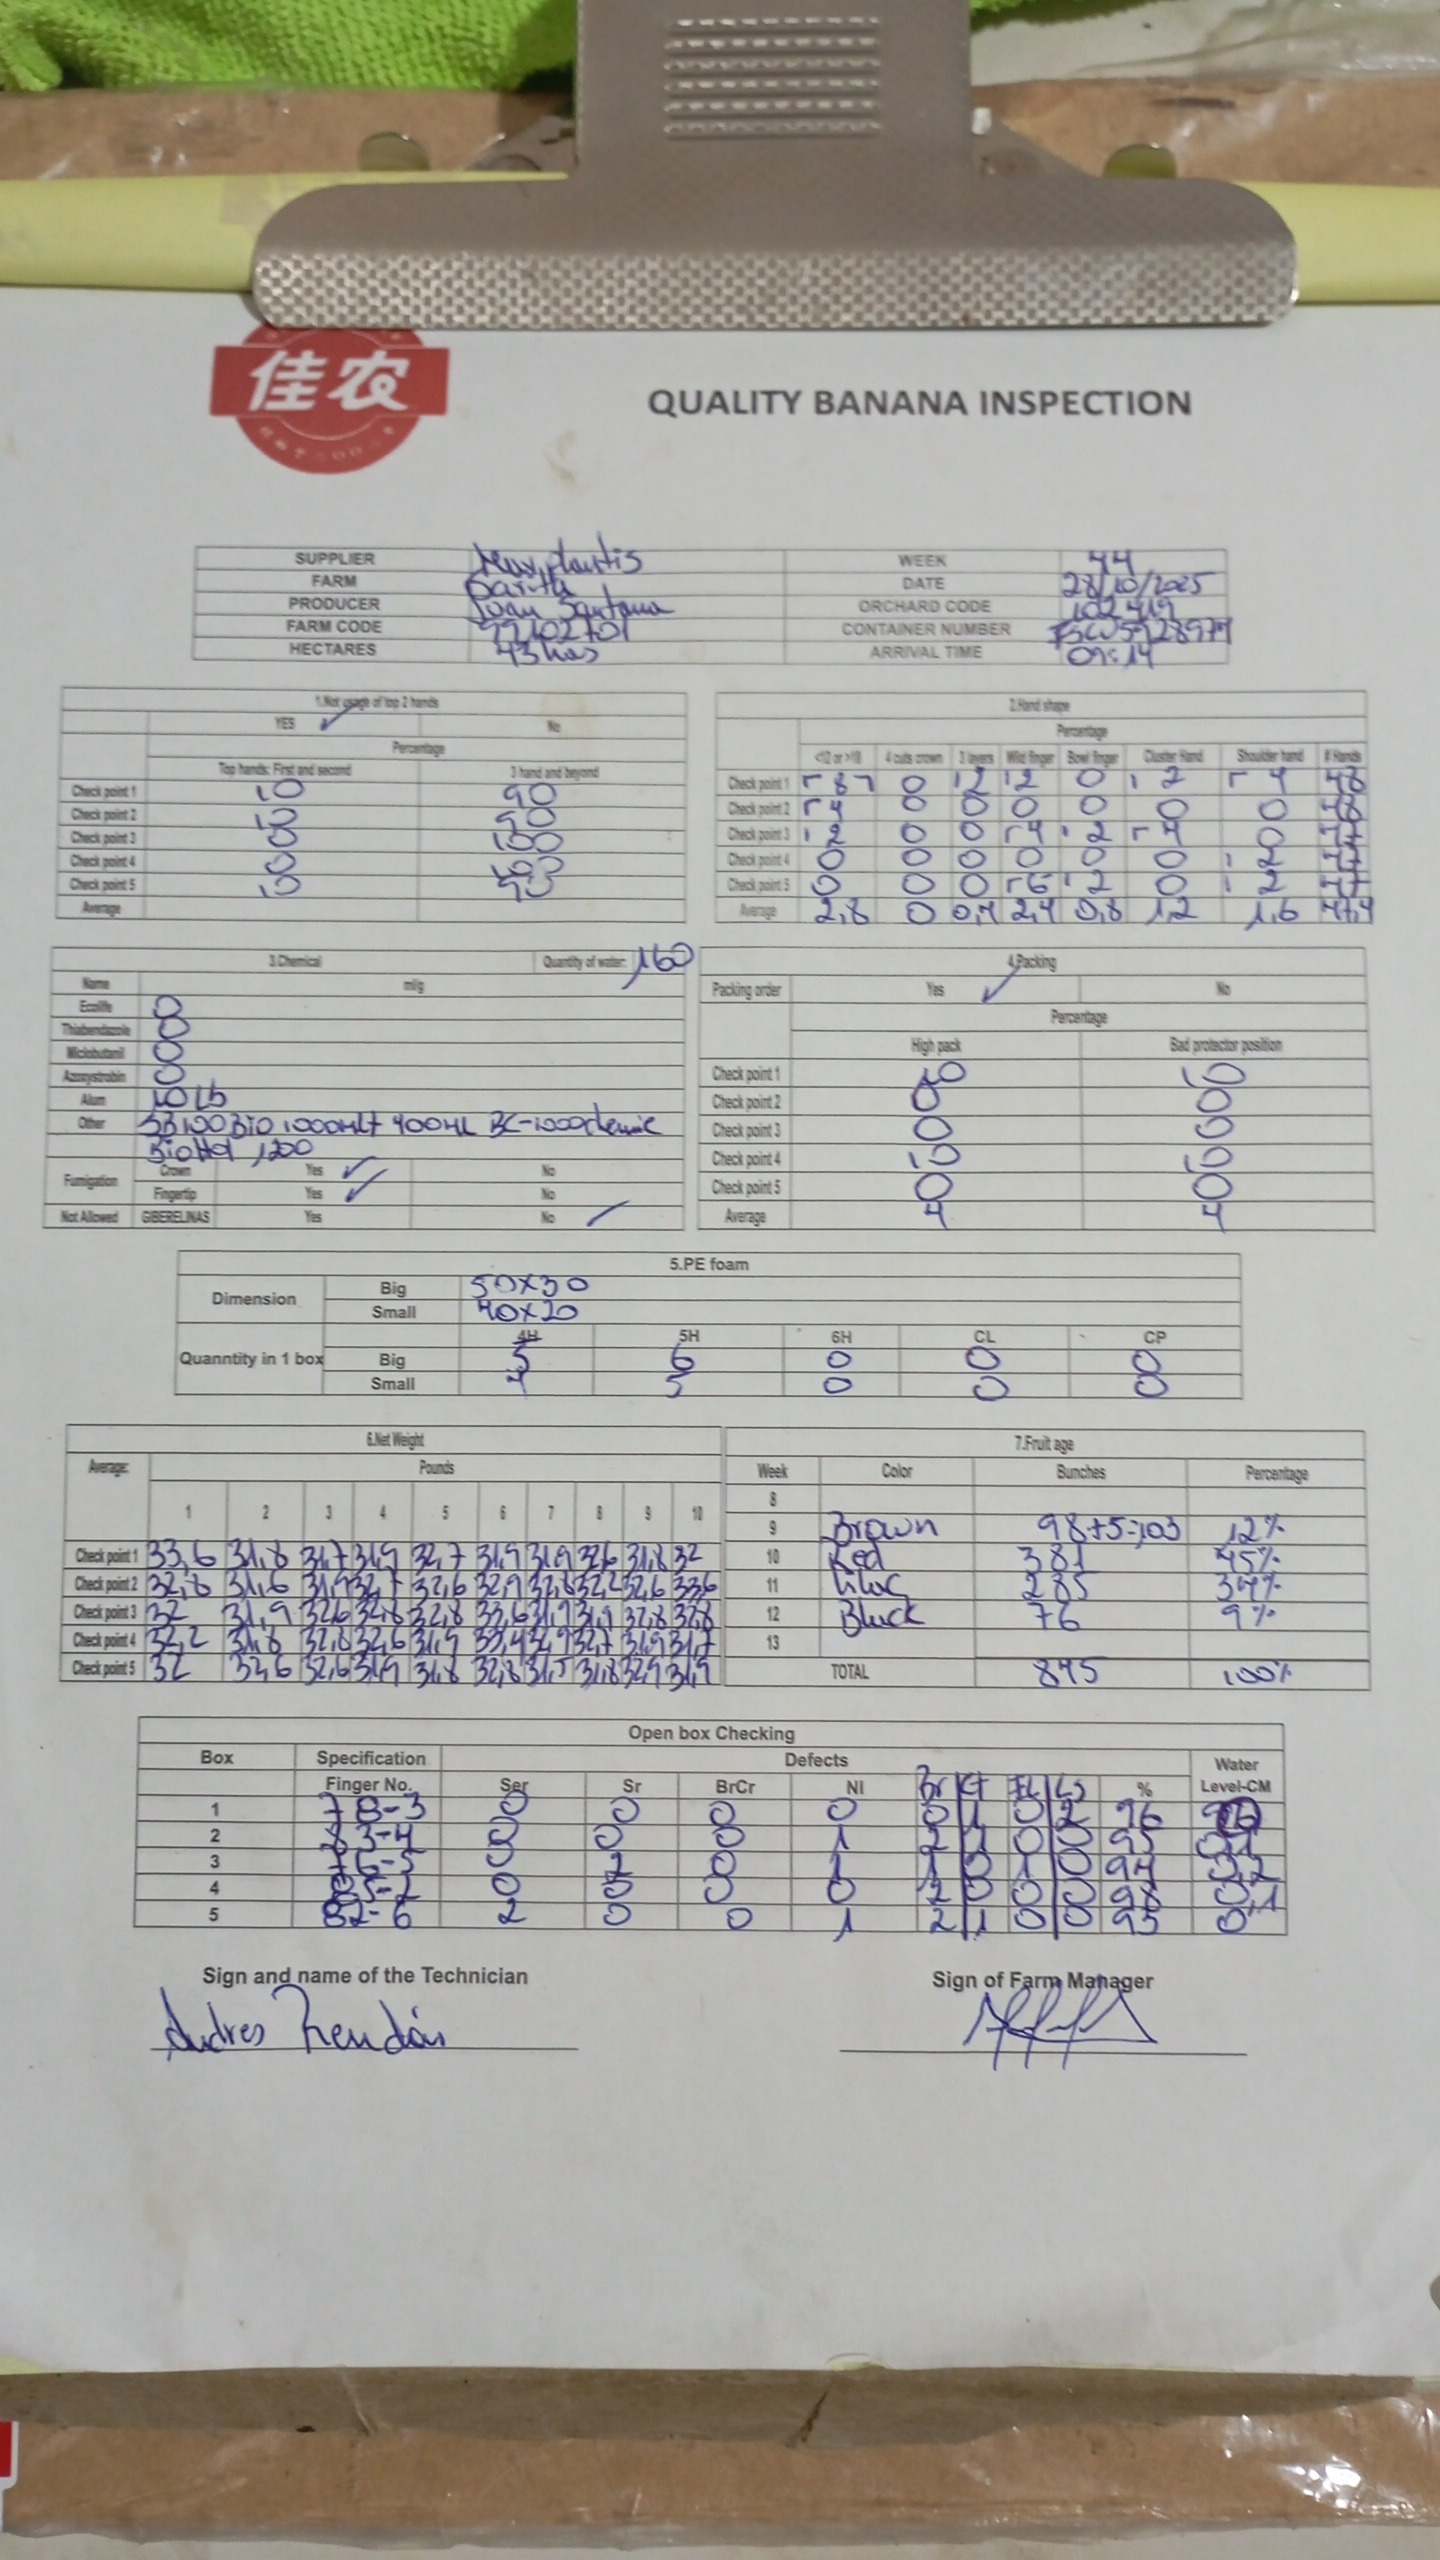 佳农
QUALITY BANANA INSPECTION
SUPPLIER WEEK 44
FARM DATE 28/10/2025
PRODUCER Juan Santana ORCHARD CODE 102419
FARM CODE CONTAINER NUMBER
HECTARES 43 has ARRIVAL TIME 09:14
1.Not usage of top 2 hands
YES ✓ No
Percentage
Top hands: First and second 3 hand and beyond
Check point 1 10 90
Check point 2 10 90
Check point 3 0 100
Check point 4 0 100
Check point 5 10 90
Average
2.Hand shape
Percentage
<12 or >18 4 cuts crown 3 layers Wild finger Bowl finger Cluster Hand Shoulder hand # Hands
Check point 1 8 0 2 2 0 2 4 48
Check point 2 4 0 0 0 0 0 0 48
Check point 3 2 0 0 4 2 4 0 47
Check point 4 0 0 0 0 0 0 2 47
Check point 5 0 0 0 6 2 0 2 47
Average 2,8 0 0,4 2,4 0,8 1,2 1,6 47,4
3.Chemical Quantity of water: 160
Name m/g
Ecolife 0
Thiabendazole 0
Miclobutanil 0
Azoxystrobin 0
Alum 10 Lb
Other
1200
Fumigation Crown Yes ✓ No
Fingertip Yes ✓ No
Not Allowed GIBERELINAS Yes No ✓
4.Packing
Packing order Yes ✓ No
Percentage
High pack Bad protector position
Check point 1 10 10
Check point 2 0 0
Check point 3 0 0
Check point 4 10 10
Check point 5 0 0
Average 4 4
5.PE foam
Dimension Big 50x30
Small 40x20
4H 5H 6H CL CP
Quanntity in 1 box Big 5 6 0 0 0
Small 4 5 0 0 0
6.Net Weight
Average: Pounds
1 2 3 4 5 6 7 8 9 10
Check point 1 33,6 31,8 31,7 31,9 32,7 31,9 31,9 32,6 31,8 32
Check point 2 32,8 31,6 31,9 32,7 32,6 32,9 32,8 32,2 32,6 33,6
Check point 3 32 31,9 32,6 32,8 32,8 33,6 31,9 31,9 32,8 32,8
Check point 4 32,2 31,8 32,8 32,6 31,9 33,4 32,9 32,7 31,9 31,7
Check point 5 32 32,6 32,6 31,9 31,8 32,8 31,5 31,8 32,9 31,9
7.Fruit age
Week Color Bunches Percentage
8
9 Brown 98+5=103 12%
10 Red 381 45%
11 285 34%
12 Black 76 9%
13
TOTAL 845 100%
Open box Checking
Box Specification Defects Water
Finger No. Ser Sr BrCr NI Br % Level-CM
1 78-3 0 0 0 0 0 1 0 2 96
2 83-4 0 0 0 1 2 1 0 0 95 0,1
3 76-5 0 2 0 1 1 0 1 0 94 0,2
4 85-2 0 0 0 0 2 0 0 0 98 0,1
5 82-6 2 0 0 1 2 1 0 0 95 0
Sign and name of the Technician Sign of Farm Manager
Andres Rendón